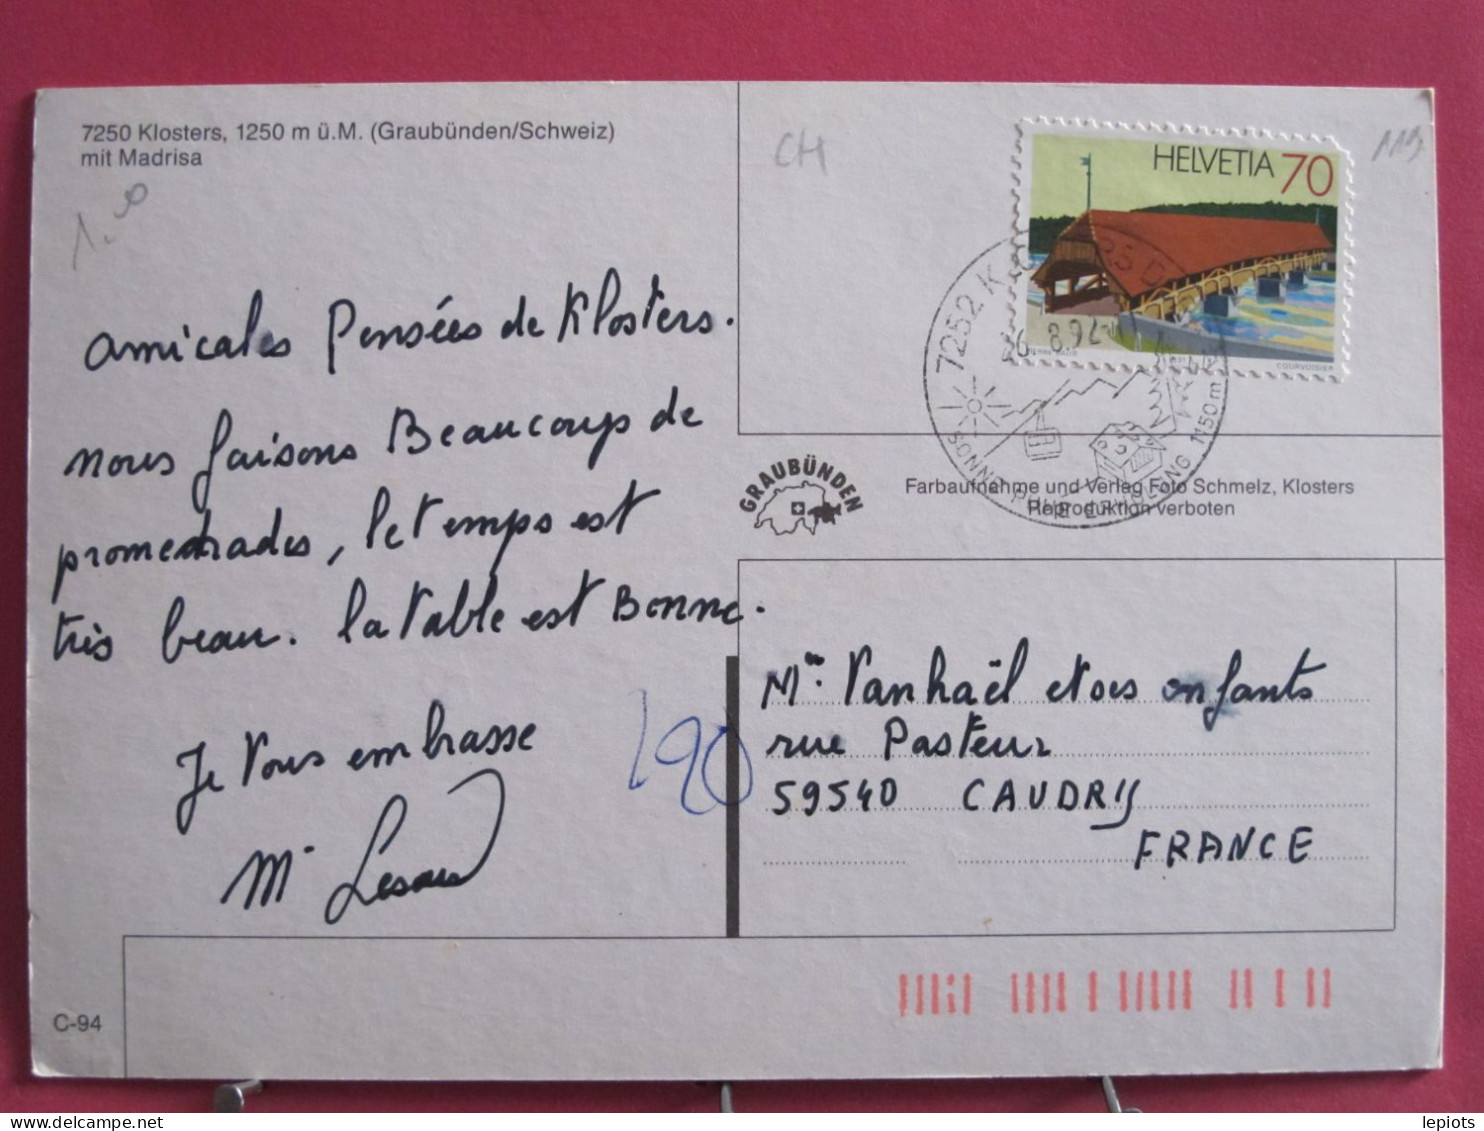 7250 Klosters, 1250 m ü.M. (Graubünden/Schweiz)
mit Madrisa
CH
HELVETIA 70
COURVOISIER
amicales Pensées de Klosters.
nous faisons Beaucoup de
promenades, le temps est
très beau. la table est Bonne.
Je vous embrasse
GRAUBÜNDEN
Farbaufnahme und Verlag Foto Schmelz, Klosters
Reproduktion verboten
7252 8.92
1150 m
190
Vanhaël et ses enfants
rue Pasteur
59540 CAUDRY
FRANCE
C-94
lepiots